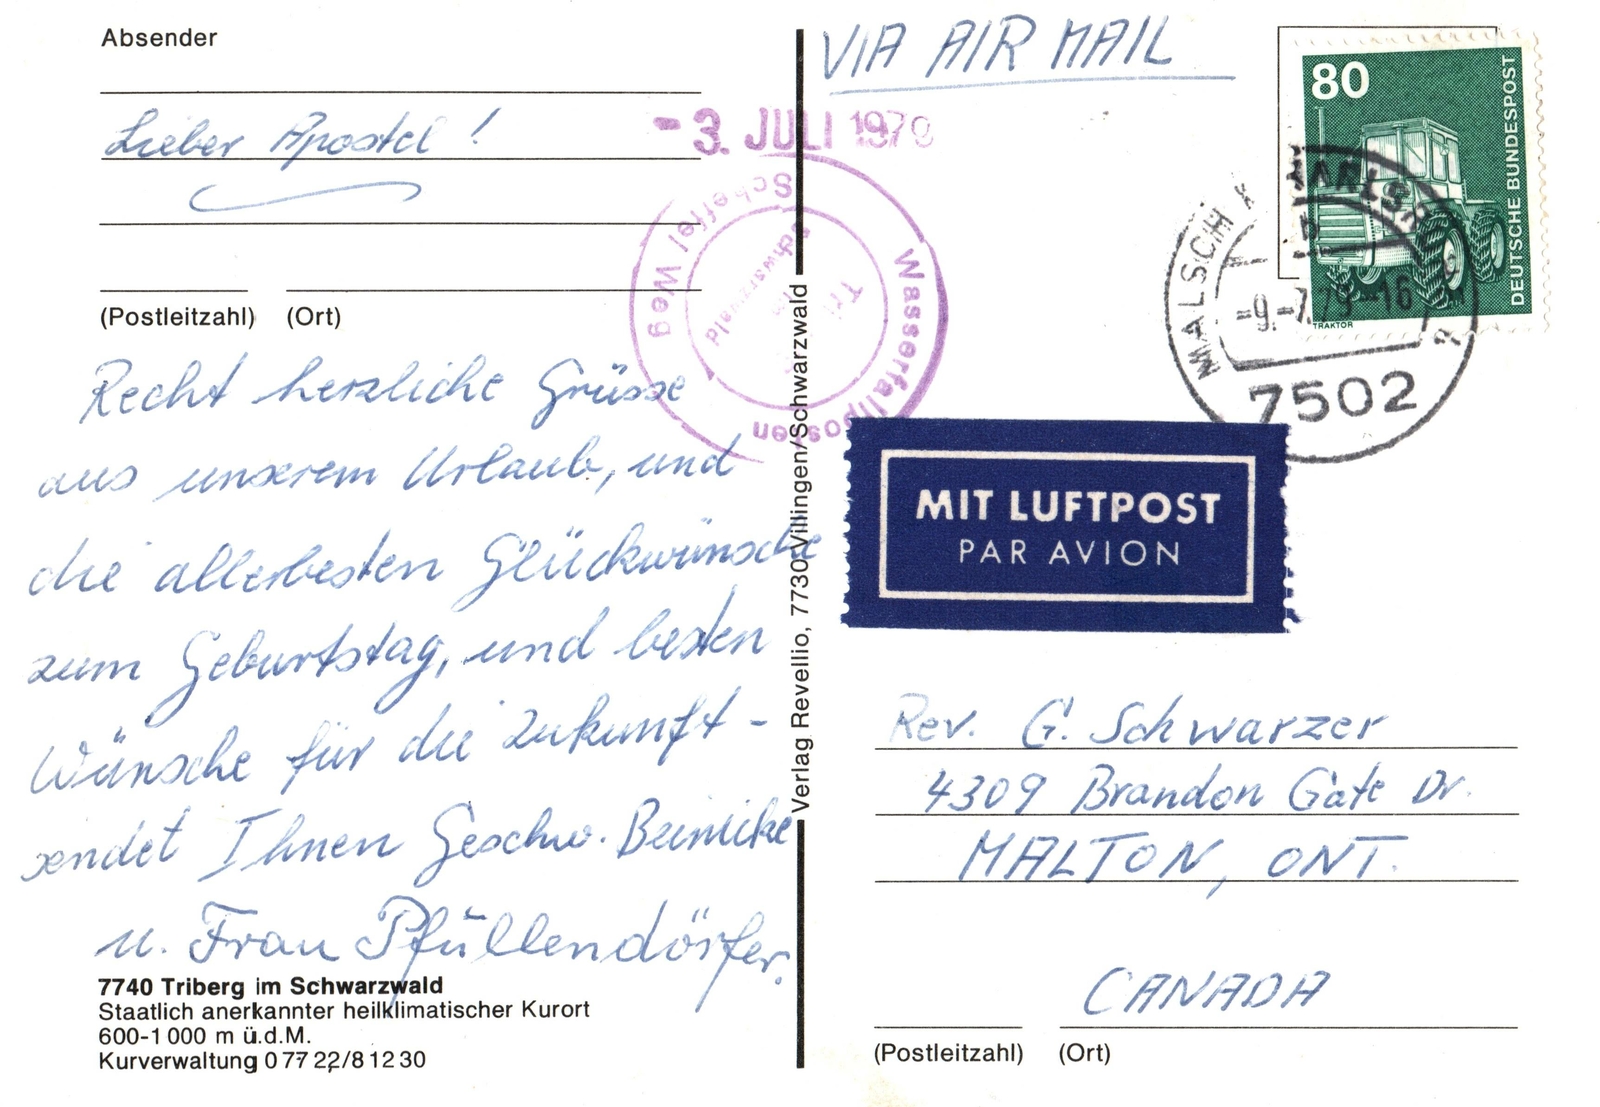 Absender
Lieber Apostel!
(Postleitzahl) (Ort)
Recht herzliche Grüsse
aus unserem Urlaub, und
die allerbesten Glückwünsche
zum Geburtstag, und besten
Wünsche für die Zukunft -
sendet Ihnen Geschw. Beinicke
u. Frau Pfüllendörfer.
7740 Triberg im Schwarzwald
Staatlich anerkannter heilklimatischer Kurort
600-1000 m ü.d.M.
Kurverwaltung 0 77 22/8 12 30
-3. JULI 1979
Wasserfallposten
Scheffel Weg
Schwarzwald
Verlag Revellio, 7730 Villingen/Schwarzwald
VIA AIR MAIL
80
DEUTSCHE BUNDESPOST
TRAKTOR
MALSCH
-9.-7.79-16
7502
MIT LUFTPOST
PAR AVION
Rev. G. Schwarzer
4309 Brandon Gate Dr.
MALTON, ONT.
CANADA
(Postleitzahl) (Ort)